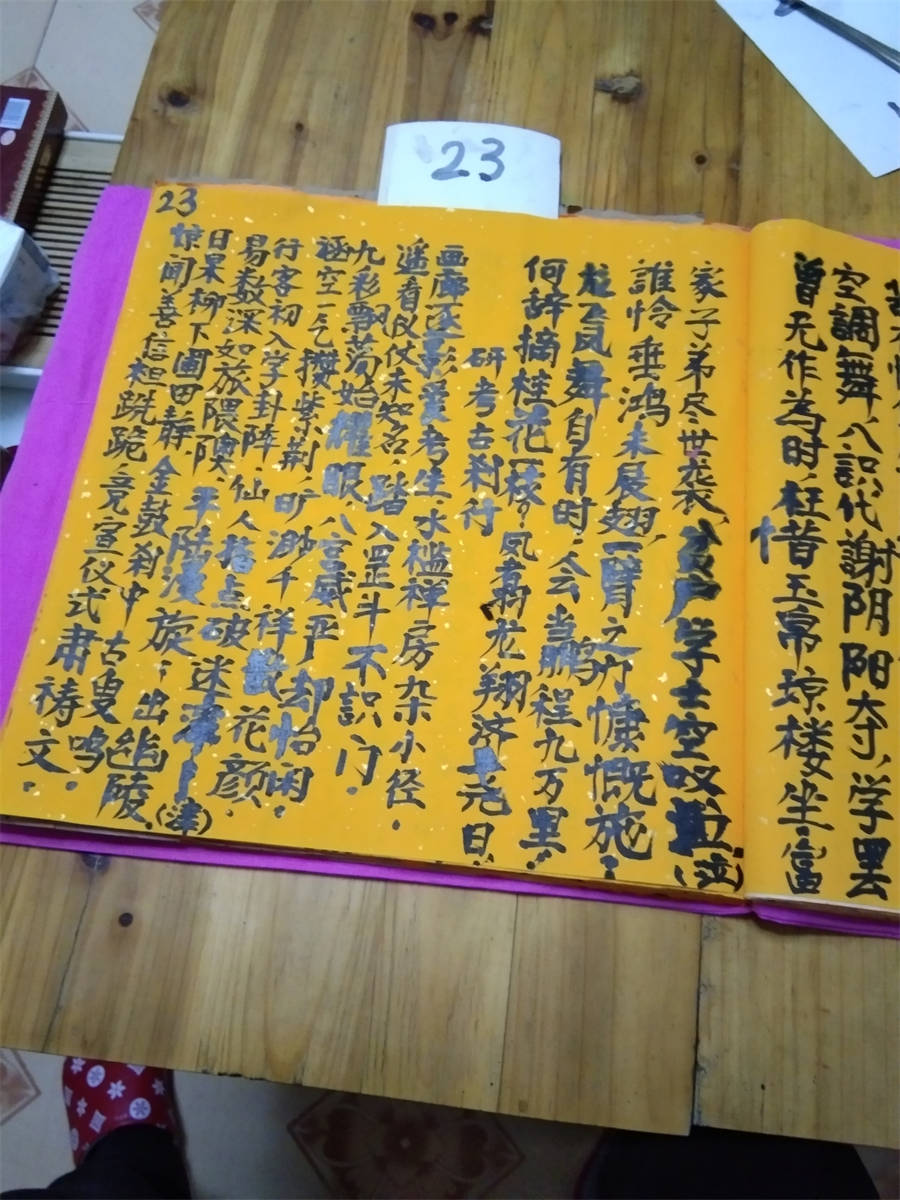 23
空調舞,八識代謝阴阳夺,学罢
曾无作為时,枉惜玉帛琼楼坐.富
家子弟尽世袭,贫户学士空叹泣(泣)
誰怜垂鸿未展翅,一臂之力慷慨施!
龙飞凤舞自有时,会当鹏程九万里!
何辞摘桂花一様?凤翥龙翔济元日.
研考古刹行
画廊逐影耋考生,水槛禅房杂小径.
遥看仪仗未知名,踏入罡斗不识门.
九彩飘荡始耀眼,八宫威严却怡闲.
逐空一气攒紫荆,旷渺千祥散花颜.
行客初入学卦阵,仙人搭点破迷津(津)
易数深如旅隈隩,平陆漫旋出幽陵.
日果柳下圃田静,金鼓刹中古叟鸣.
惊闻善信袒跣跪,竟宣仪式肃祷文.
23